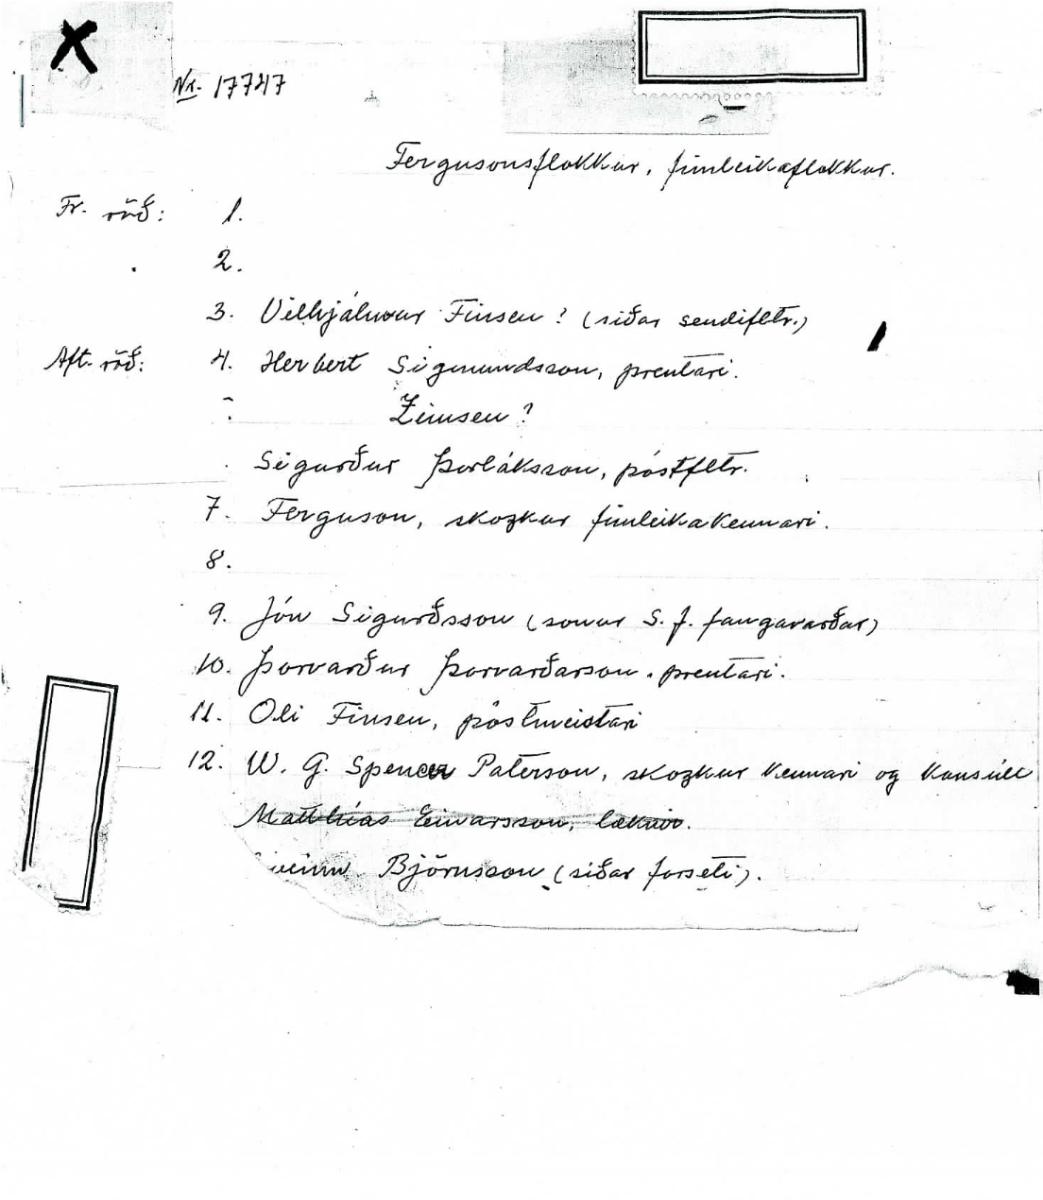 Nr. 17747
Fergusonsflokkur, fimleikaflokkur.
Fr. röð: 1.
2.
3. Vilhjálmur Finsen? (síðar sendifltr.)
Aft. röð: 4. Herbert Sigmundsson, prentari.
Zimsen?
Sigurður Þorláksson, póstfltr.
7. Ferguson, skozkur fimleikakennari.
8.
9. Jón Sigurðsson (sonur S. J. fangavarðar)
10. Þorvarður Þorvarðarson. prentari.
11. Oli Finsen, póstmeistari
12. W. G. Spencer Paterson, skozkur kennari og konsúll
Matthías Einarsson, læknir.
Björnsson (síðar forseti).